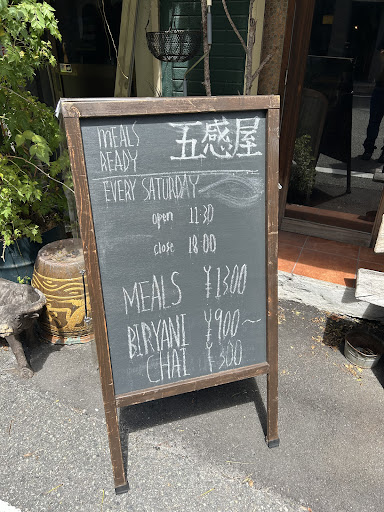 MEALS READY 五感屋
EVERY SATURDAY
open 11:30
close 18:00
MEALS ¥1300
BIRYANI ¥900~
CHAI ¥300